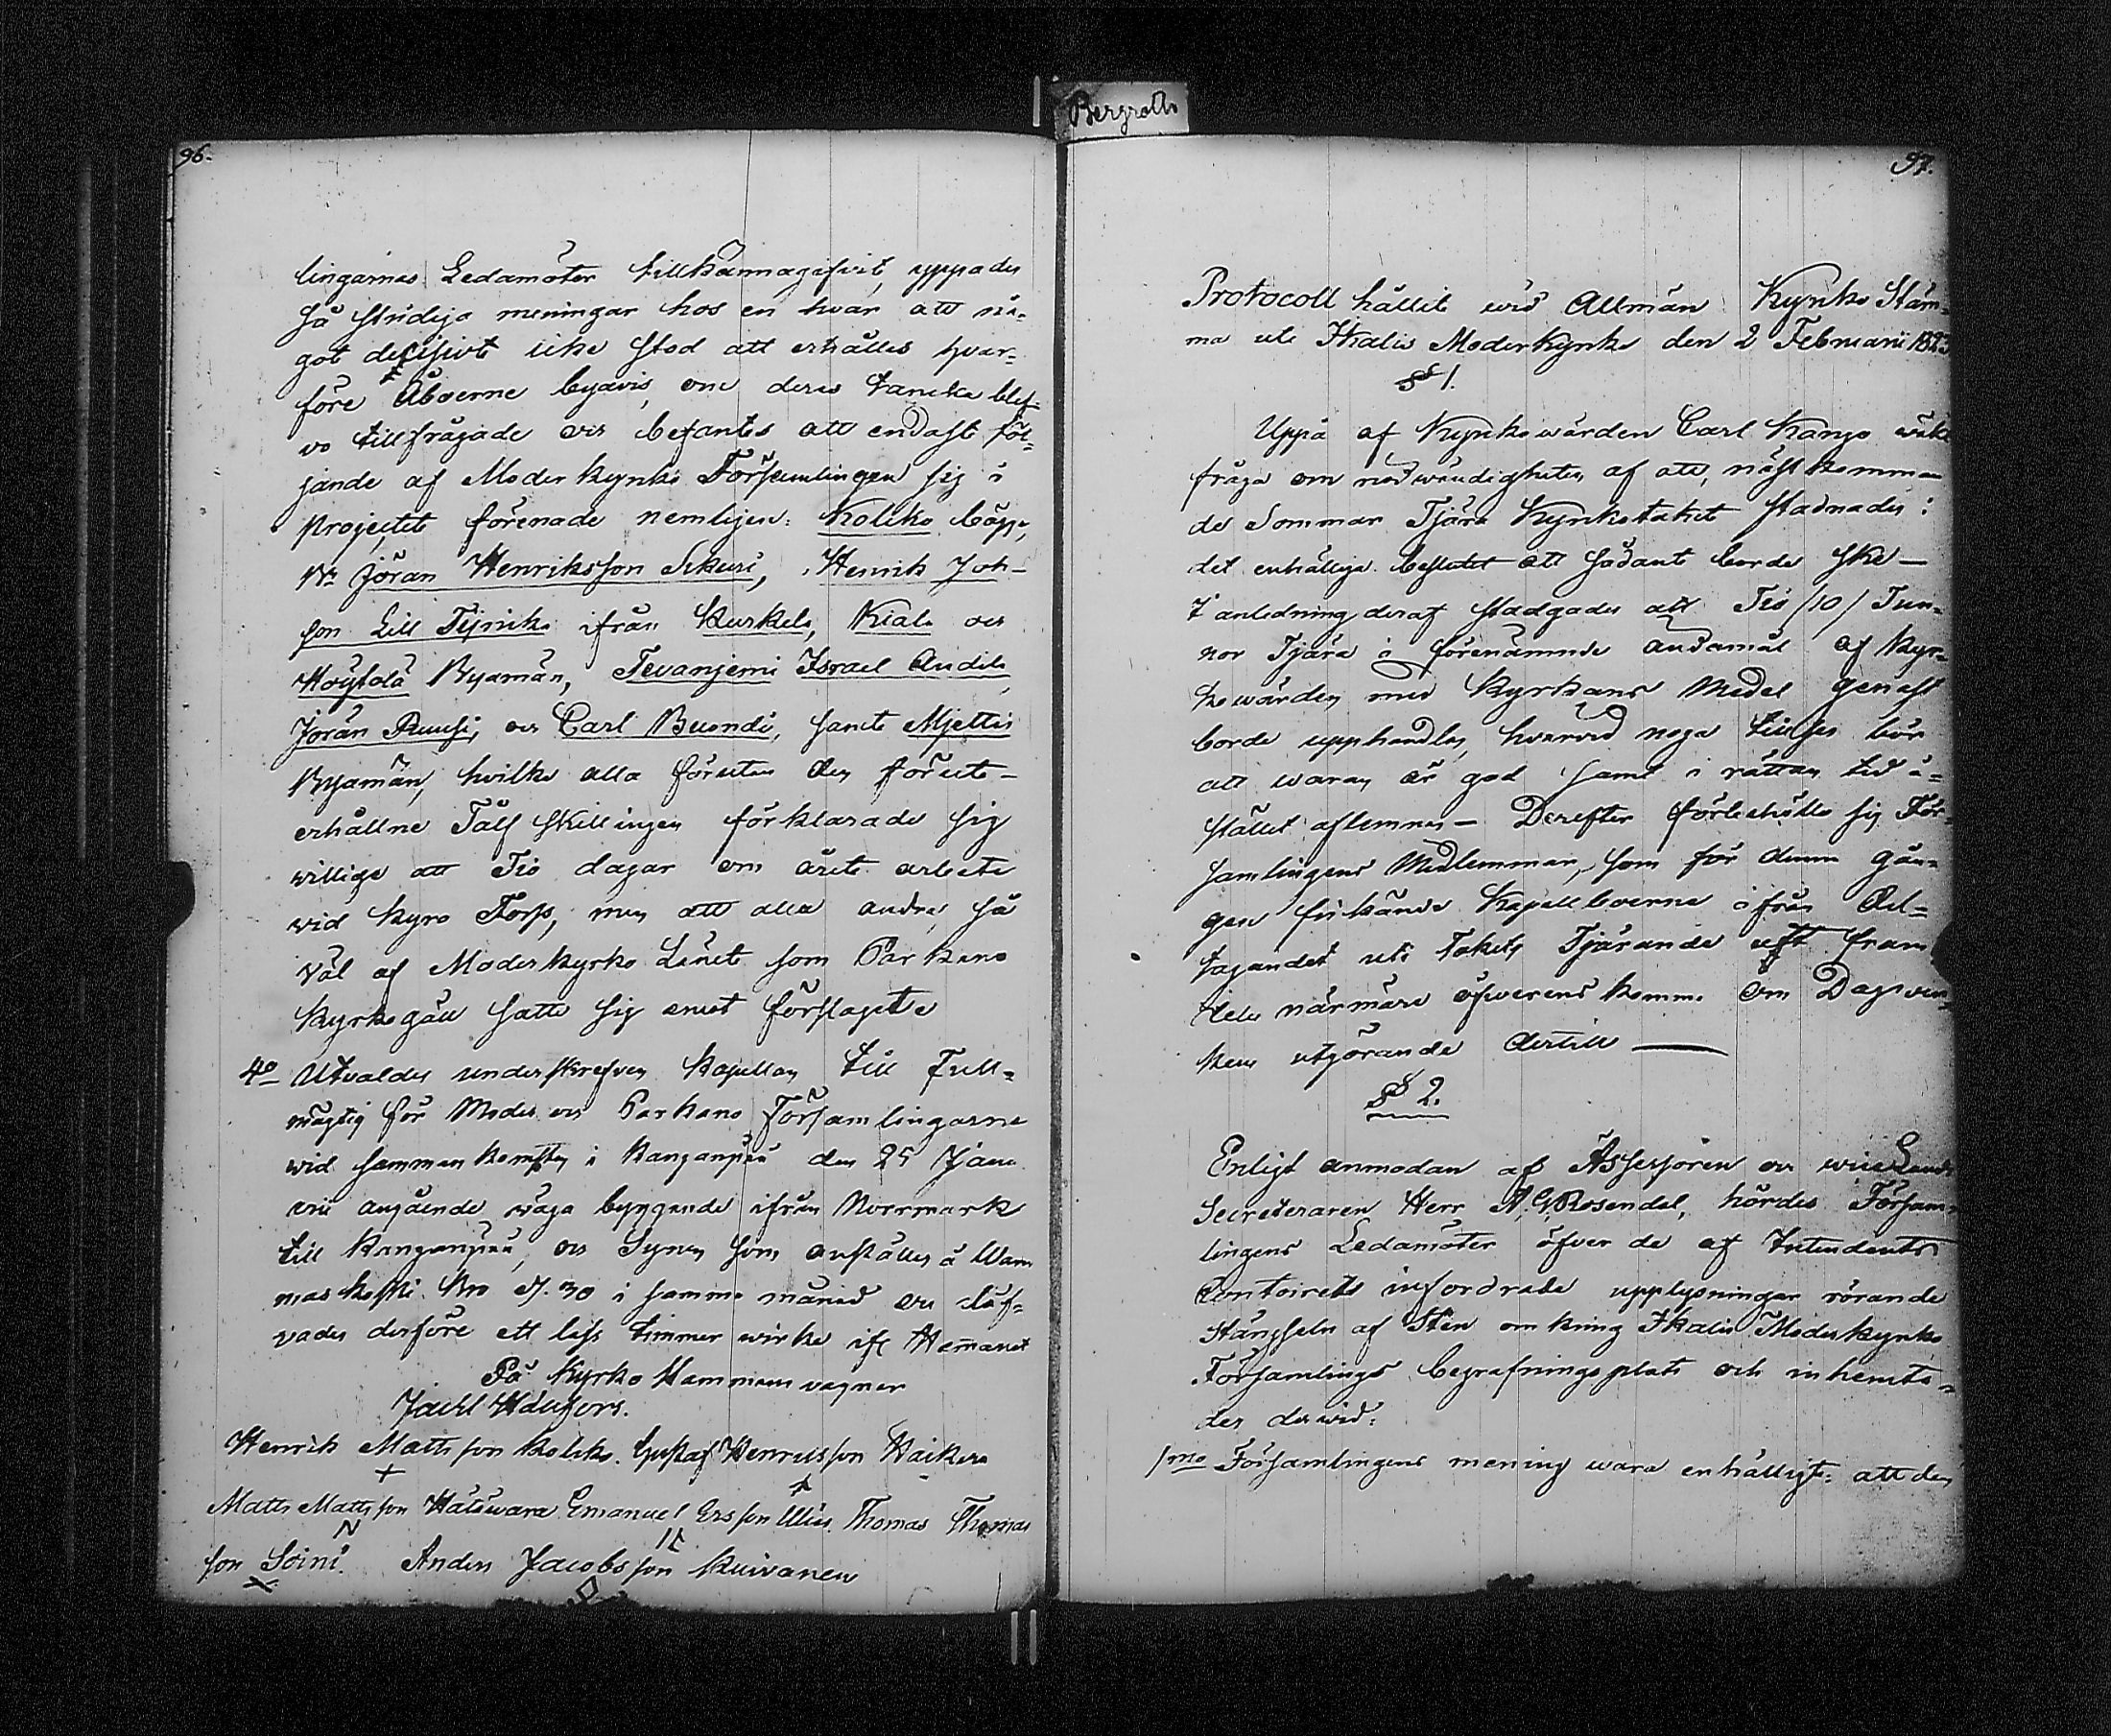 Bergroth
96.
lingarnes Ledamöter tillkännagifvit, yppades
så stridiga meningar hos en hvar att nå-
got decisivt icke stod att erhållas hvar-
före Åboerne byavis, om deras tancka blef-
vo tillfrågade och befantes att endast föl-
jande af Moderkyrko Församlingen sig i
projectet förenade nemligen: Koliko
Jöran Henriksson Sikuri, Henrik Joh-
son Lill Tijnik ifrån Kurkela, Kiala och
Höytölä Byamän, Tevanjemi Israel Andila
Jöran Ruusi, och Carl Buondi, samt Mjettis
Byamän, hvilka alla förutan den förut-
erhållne Tålf skillingen förklarade sig
villige att Tio dagar om året arbeta
vid Kyro Forss, men att alla andra, så
väl af Moderkyrko Länet som Parkano
Kyrkogäll satte sig emot förslaget
4o Utvaldes underskrefven Kapellan till Full-
mägtig för Moder och Parkano Församlingarne
vid sammankomsten i Kanganpää den 25 Janu
arii angående väga byggande ifrån Norrmark
till Kanganpää, och Synen som anställes å Wam
maskoski Bro d. 30 i samma månad och
vades derföre ett timmer wirke Hemanet
På Kyrko vägnar
Jackl Häufors.
Henrik Mattsson Koliko. Gustaf Henriksson Haikara
Matts Mattsson Hatswara Emanuel Ersson Thomas Thomas
son Soini. Anders Jacobsson Kuivanen
97.
Protocoll hållit wid Allmän Kyrko Stäm-
ma uti Ikalis Moderkyrka den 2 Februarii 1823
§ 1.
Uppå af Kyrkowärden Carl Kango wäkt
fråga om nödwändigheten af att, nästkomman
de Sommar Tjära Kyrkotaket stadnades i
det enhälliga beslutet att sådant borde ske —
I anledning deraf stadgades att Tio /10/ Tun-
nor Tjära i förenämnde ändamål af Kyr-
kowärden med Kyrkans Medel genast
borde upphandlas, hvarvid noga tillses bör
att waran är god samt i rättan tid å-
stället aflemnas — Derefter förbehöllo sig För-
samlingens Medlemmar, som för denna gån-
gen frikände Kapellboerne ifrån Del-
tagandet uti Takets Tjärande att fram
deles närmare öfwerens komma om Dagsver-
kens utgörande dertill —
§ 2.
Enligt anmodan af Assessoren och wice Lands
Secreteraren Herr A. G. Rosendal, hördes Försam-
lingens Ledamöter öfver de af Intendents
Contoirets infordrade upplysningar rörande
Stängseln af Sten omkring Ikalis Moderkyrko
Församlings begrafningsplats och inhemta-
des dervid:
1mo Församlingens mening wara enhälligt: att den